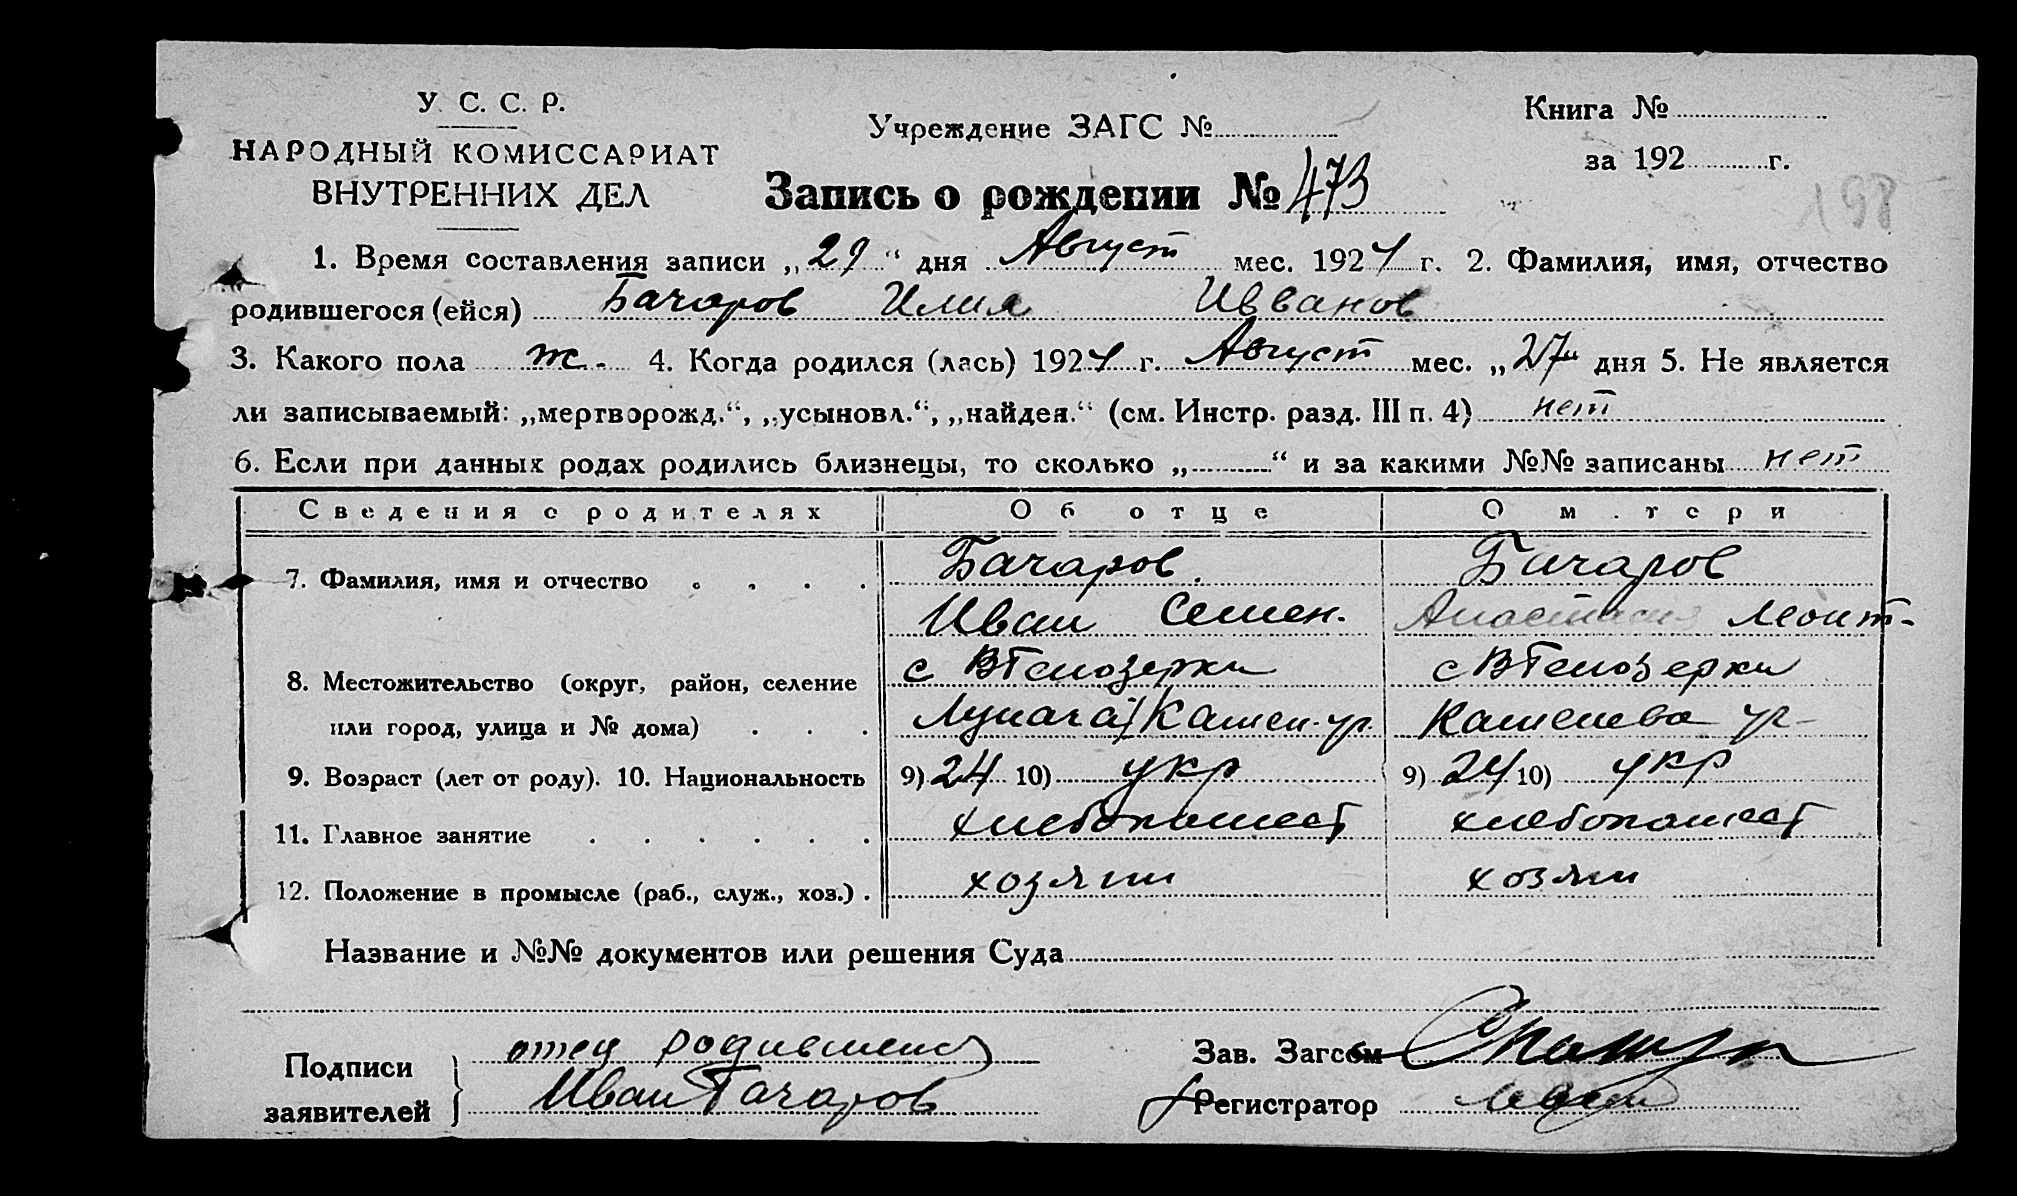 У. С. С. Р.
НАРОДНЫЙ КОМИССАРИАТ
ВНУТРЕННИХ ДЕЛ
Учреждение ЗАГС №
Книга №
за 192 г.
198
Запись о рождении № 473
1. Время составления записи „29“ дня Август мес. 1924 г. 2. Фамилия, имя, отчество
родившегося (ейся) Бачаров Илия Ивванов
3. Какого пола м. 4. Когда родился (лась) 1924 г. Август мес. „27“ дня 5. Не является
ли записываемый: „мертворожд.“, „усыновл.“, „найден.“ (см. Инстр. разд. III п. 4) нет
6. Если при данных родах родились близнецы, то сколько „ “ и за какими №№ записаны нет
Сведения о родителях Об отце О матери
7. Фамилия, имя и отчество Бачаров Бачаров
Иван Семен. Анастасия Леонт-
8. Местожительство (округ, район, селение с с
или город, улица и № дома) Камен. ул. ул-
9. Возраст (лет от роду). 10. Национальность 9) 24 10) укр 9) 24 10) укр
11. Главное занятие хлебопашест хлебопашест
12. Положение в промысле (раб., служ., хоз.) хозяин хозяин
Название и №№ документов или решения Суда
Подписи
заявителей
отец родившейся
Иван Бачаров
Зав. Загсом
Регистратор